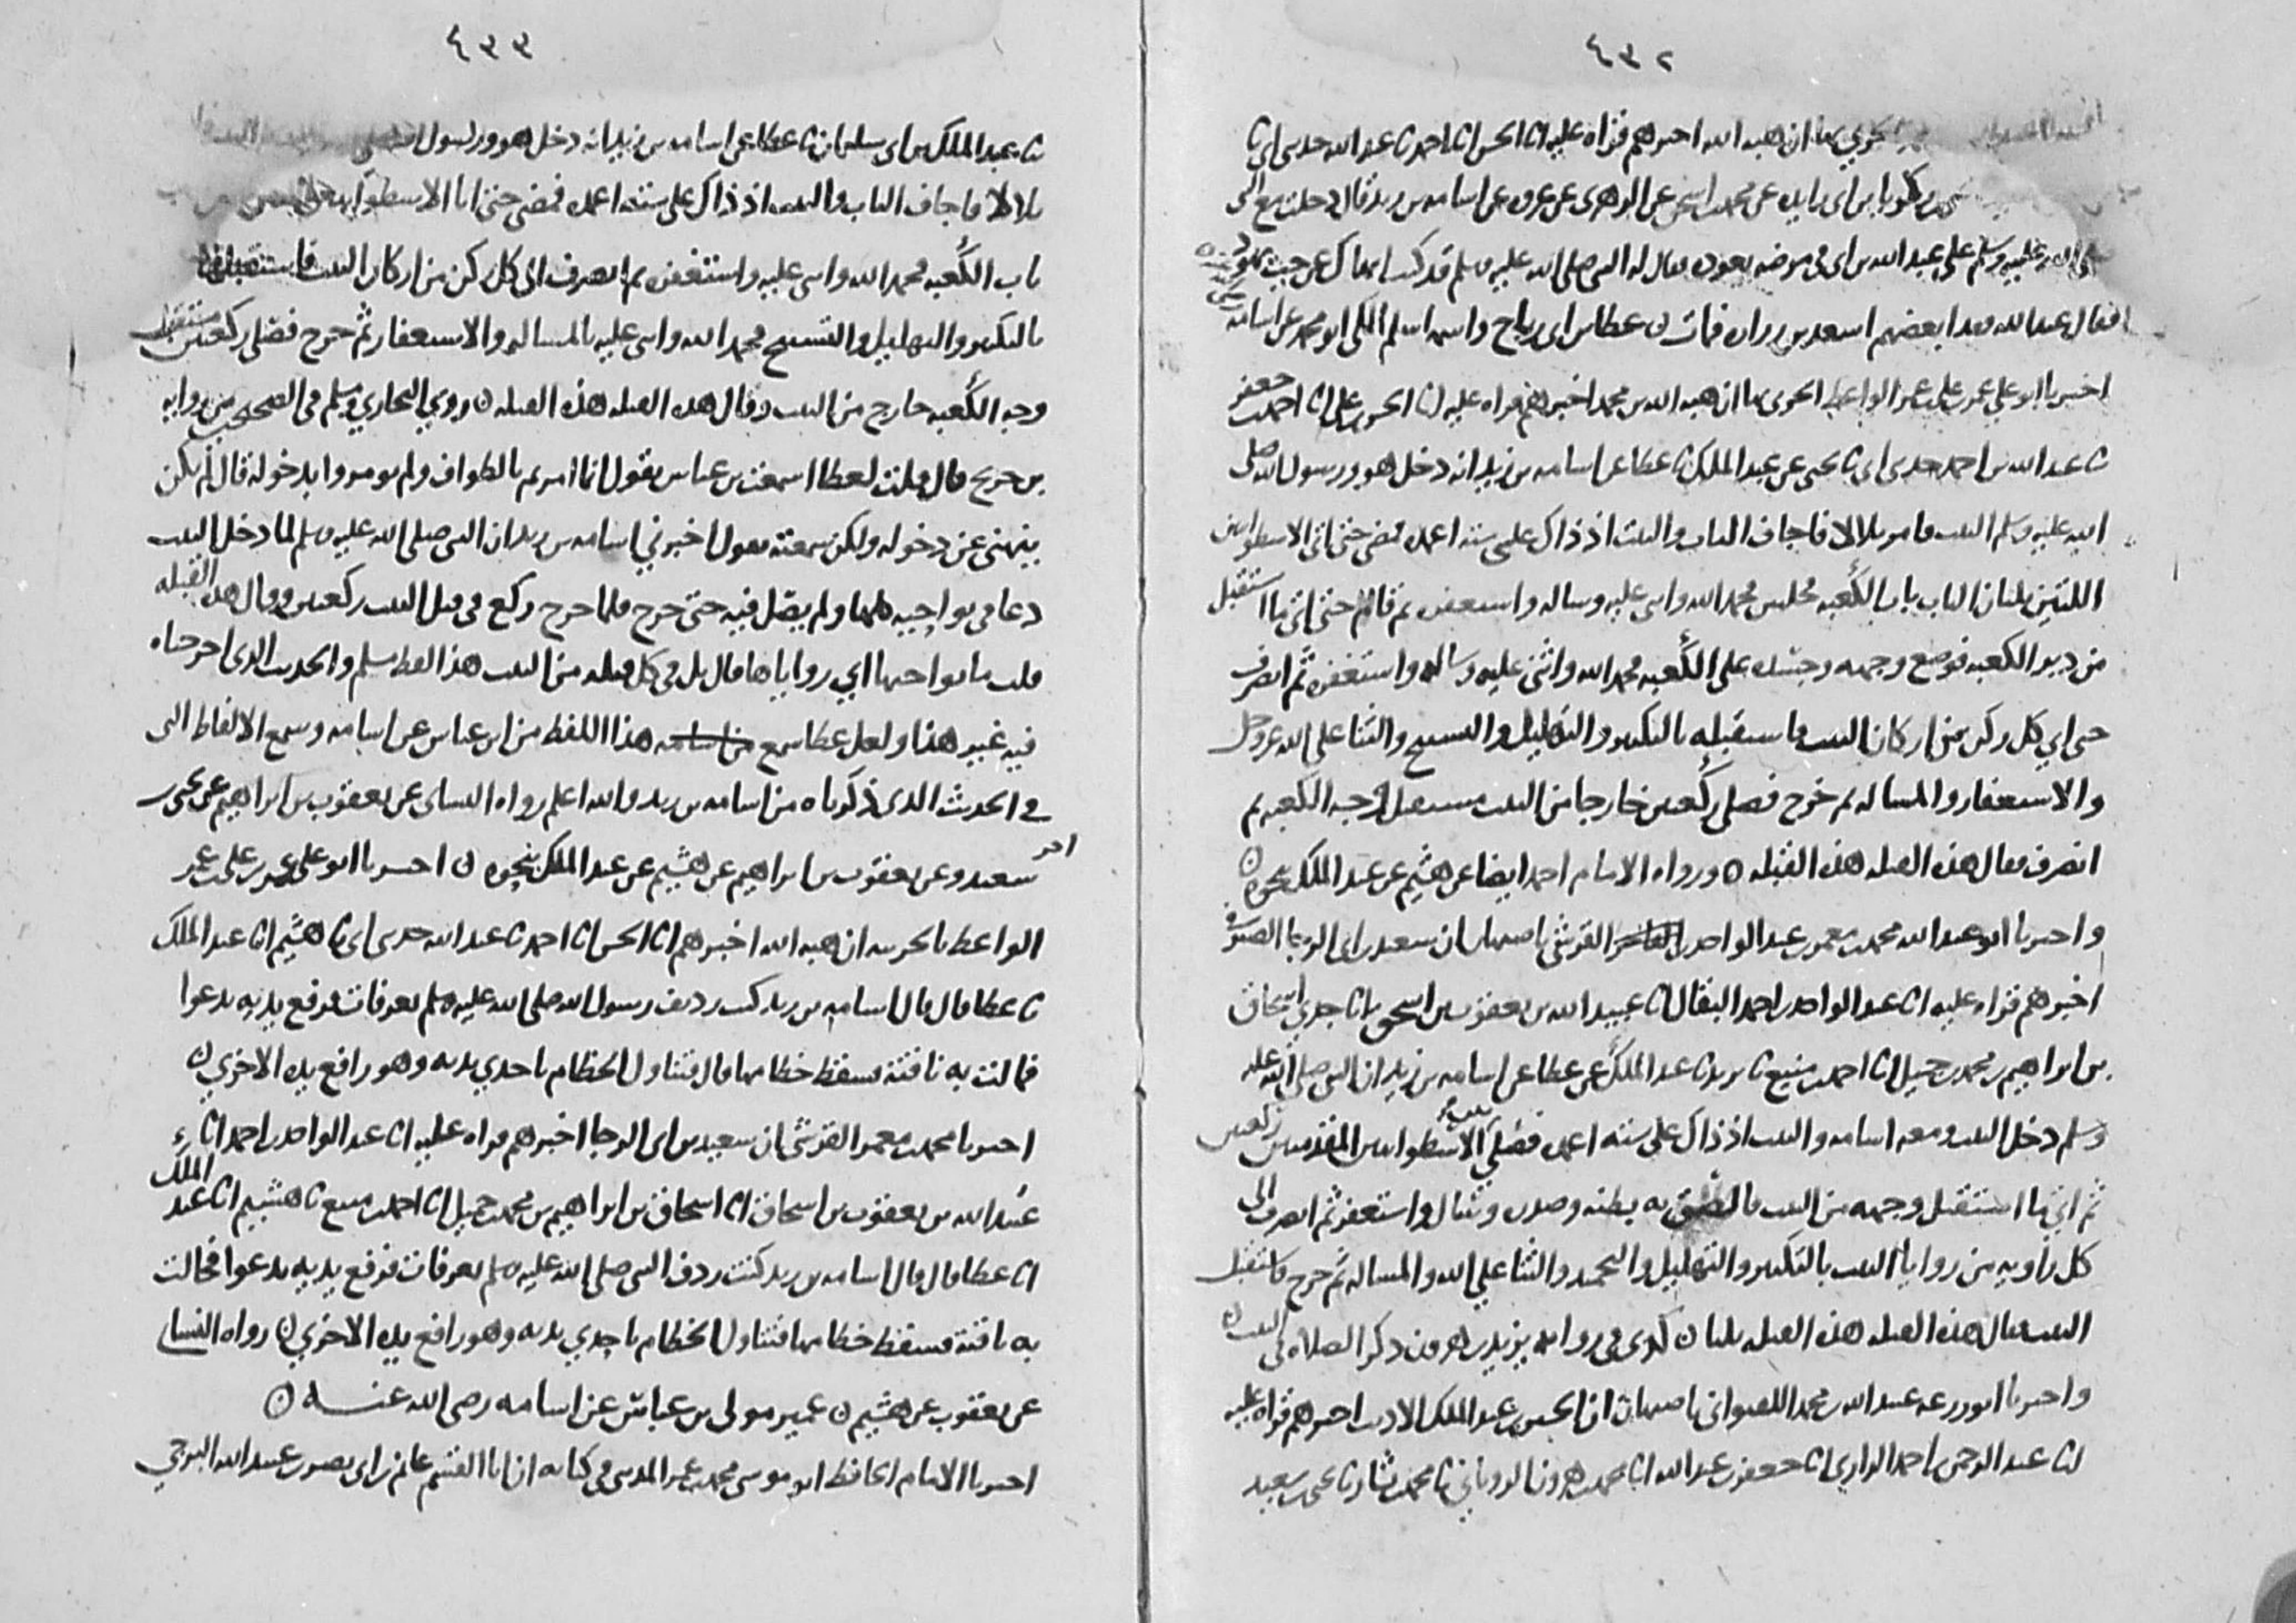 ٤٣٢
الحربي بها ان هبه الله اخبرهم قراه عليه انا الحسن انا احمد نا عبد الله حدثني ابي نا
زكريا بن ابي زايده عن محمد بن اسحق عن الزهري عن عروه عن اسامه بن زيد قال دخلت مع النبي
صلى الله عليه وسلم على عبد الله بن ابي في مرضه نعوده فقال له النبي صلى الله عليه وسلم قد كنت انهاك عن حب يهود
فقال عبد الله فقد ابغضهم اسعد بن زراره فمات ن عطا بن ابي رباح واسمه اسلم المكي ابو محمد عن اسامه
اخبرنا ابو علي عمر بن علي بن عمر الواعظ الحربي بها ان هبه الله بن محمد اخبرهم قراه عليه انا الحسن بن علي انا احمد بن جعفر
نا عبد الله بن احمد حدثني ابي نا يحيى عن عبد الملك نا عطا عن اسامه بن زيد انه دخل هو ورسول الله صلى
الله عليه وسلم البيت فامر بلالا فاجاف الباب والبيت اذ ذاك على سته اعمده فمضى حتى اتى الاسطوانتين
اللتين تليان الباب باب الكعبه فجلس فحمد الله واثنى عليه وساله واستغفره ثم قام حتى اتى ما استقبل
من دبر الكعبه فوضع وجهه وجسده على الكعبه فحمد الله واثنى عليه وساله واستغفره ثم انصرف
حتى اتى كل ركن من اركان البيت فاستقبله بالتكبير والتهليل والتسبيح والثنا على الله عز وجل
والاستغفار والمساله ثم خرج فصلى ركعتين خارجا من البيت مستقبل وجه الكعبه ثم
انصرف فقال هذه القبله هذه القبله ن ورواه الامام احمد ايضا عن هشيم عن عبد الملك بنحوه ن
واخبرنا ابو عبد الله محمد بن معمر بن عبد الواحد بن الفاخر القرشي باصبهان ان سعيد بن ابي الرجا الصيرفي
اخبرهم قراه عليه انا عبد الواحد بن احمد البقال انا عبيد الله بن يعقوب بن اسحق انا جدي اسحاق
بن ابراهيم بن محمد بن جميل انا احمد بن منيع نا يزيد نا عبد الملك عن عطا عن اسامه بن زيد ان النبي صلى الله عليه
وسلم دخل البيت ومعه اسامه والبيت اذ ذاك على سته اعمده فصلى بين الاسطوانتين المقدمتين ركعتين
ثم اتى ما استقبل وجهه من البيت فالصق به بطنه وصدره وسال واستغفر ثم انصرف الى
كل زاويه من زوايا البيت بالتكبير والتهليل والتحميد والثنا على الله والمساله ثم خرج فاستقبل
البيت فقال هذه القبله هذه القبله ثلثا ن كذى في روايه يزيد بن هرون ذكر الصلاه في البيت ن
واخبرنا ابو زرعه عبيد الله بن محمد اللفتواني باصبهان ان الحسين بن عبد الملك الاديب اخبرهم قراه عليه
انا عبد الرحمن بن احمد الرازي انا جعفر بن عبد الله انا محمد بن هرون الروياني نا محمد بن بشار نا يحيى بن سعيد
٤٣٣
نا عبد الملك بن ابي سليمان نا عطا عن اسامه بن زيد انه دخل هو ورسول الله
بلالا فاجاف الباب والبيت اذ ذاك على سته اعمده فمضى حتى اتى الاسطوانتين
باب الكعبه فحمد الله واثنى عليه واستغفره ثم انصرف الى كل ركن من اركان البيت فاستقبله
بالتكبير والتهليل والتسبيح فحمد الله واثنى عليه بالمساله والاستغفار ثم خرج فصلى ركعتين مستقبل
وجه الكعبه خارج من البيت وقال هذه القبله هذه القبله ن روى البخاري ومسلم في الصحيحين من روايه
بن جريج قال قلت لعطا اسمعت بن عباس يقول انما امرتم بالطواف ولم تومروا بدخوله قال لم يكن
ينهى عن دخوله ولكن سمعته يقول اخبرني اسامه بن زيد ان النبي صلى الله عليه وسلم لما دخل البيت
دعا في نواحيه كلها ولم يصل فيه حتى خرج فلما خرج ركع في قبل البيت ركعتين وقال هذه القبله
قلت ما نواحيها افي زواياها قال بل في كل قبله من البيت هذا لفظ مسلم والحديث الذي اخرجناه
فيه غير هذا ولعل عطا سمع من اسامه هذا اللفظ من ابن عباس عن اسامه وسمع الالفاظ التي
في الحديث الذي ذكرناه من اسامه بن زيد والله اعلم رواه النساي عن يعقوب بن ابراهيم عن يحيى بن
سعيد وعن يعقوب بن ابراهيم عن هشيم عن عبد الملك بنحوه ن اخر اخبرنا ابو علي عمر بن علي بن عمر
الواعظ بالحربيه ان هبه الله اخبرهم انا الحسن انا احمد نا عبد الله حدثني ابي نا هشيم انا عبد الملك
نا عطا قال قال اسامه بن زيد كنت رديف رسول الله صلى الله عليه وسلم بعرفات فرفع يديه يدعوا
فمالت به ناقته فسقط خطامها قال فتناول الخطام باحدي يديه وهو رافع يده الاخري ن
اخبرنا محمد بن معمر القرشي ان سعيد بن ابي الرجا اخبرهم قراه عليه انا عبد الواحد بن احمد انا
عبيد الله بن يعقوب بن اسحاق انا اسحاق بن ابراهيم بن محمد بن جميل انا احمد بن منيع نا هشيم انا عبد الملك
انا عطا قال قال اسامه بن زيد كنت ردف النبي صلى الله عليه وسلم بعرفات فرفع يديه يدعوا فمالت
به ناقته فسقط خطامها فتناول الخطام باحدي يديه وهو رافع يده الاخري ن رواه النساي
عن يعقوب عن هشيم ن عمير مولى بن عباس عن اسامه رضي الله عنه ن
اخبرنا الامام الحافظ ابو موسى محمد بن عمر المديني في كتابه ان ابا القسم غانم بن ابي نصر بن عبيد الله البرجي